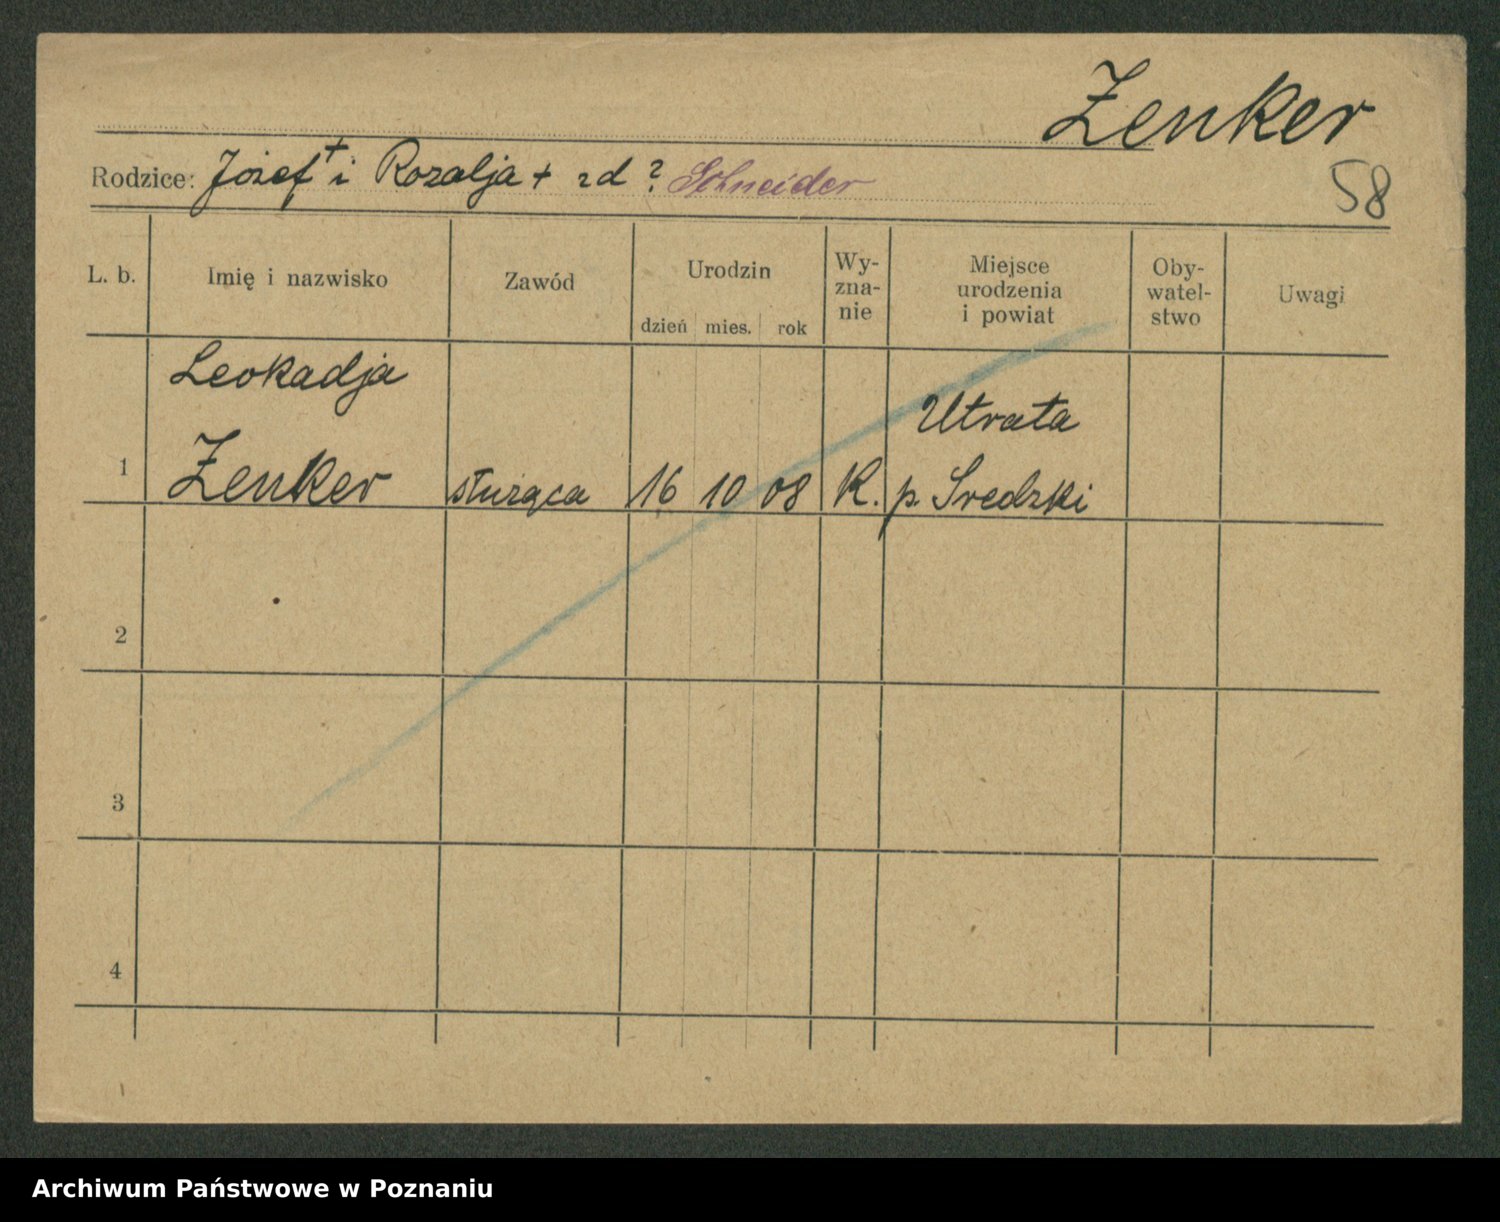 Zenker
Rodzice: Józef + i Rozalja + zd ? Schneider
58
L. b. Imię i nazwisko Zawód Urodzin dzień mies. rok Wy-zna-nie Miejsce urodzenia i powiat Oby-watel-stwo Uwagi
Leokadja
Utrata
1 Zenker służąca 16 10 08 K. p. Sredzki
2
3
4
Archiwum Państwowe w Poznaniu